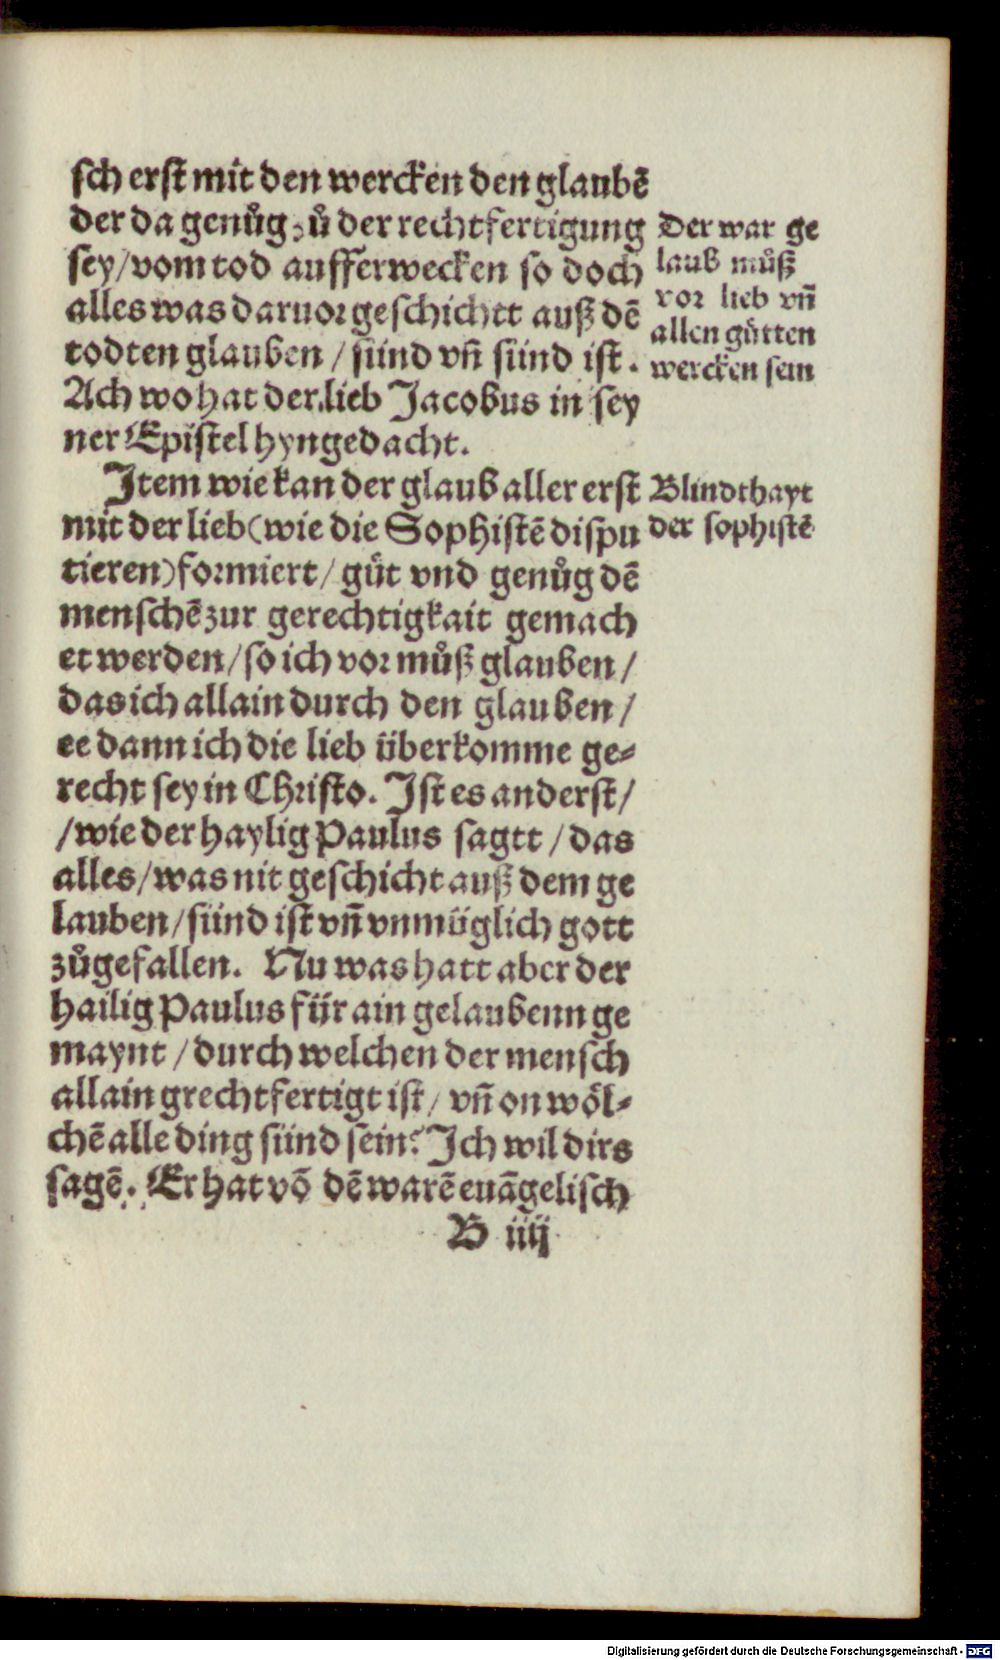 sch erst mit den wercken den glaubē
der da genůg zů der rechtfertigung
sey/vom tod aufferwecken so doch
alles was daruor geschichtt auß dē
todten glauben / sünd vñ sünd ist.
Ach wo hat der lieb Jacobus in sey
ner Epistel hyngedacht.
Der war ge
laub můß
vor lieb vñ
allen gůtten
wercken sein
Item wie kan der glaub aller erst
mit der lieb (wie die Sophistē dispu
tieren) formiert/ gůt vnd genůg dē
menschē zur gerechtigkait gemach
et werden/so ich vor můß glauben/
das ich allain durch den glauben/
ee dann ich die lieb überkomme ge⸗
recht sey in Christo. Ist es anderst/
/wie der haylig Paulus sagtt/das
alles/was nit geschicht auß dem ge
lauben/sünd ist vñ vnmüglich gott
zůgefallen. Nu was hatt aber der
hailig Paulus für ain gelaubenn ge
maynt/durch welchen der mensch
allain grechtfertigt ist/ vñ on wöl⸗
chē alle ding sünd sein? Ich wil dirs
sagē. Er hat vō dē warē euāgelisch
Blindthayt
der sophistē
B iiij
Digitalisierung gefördert durch die Deutsche Forschungsgemeinschaft - DFG